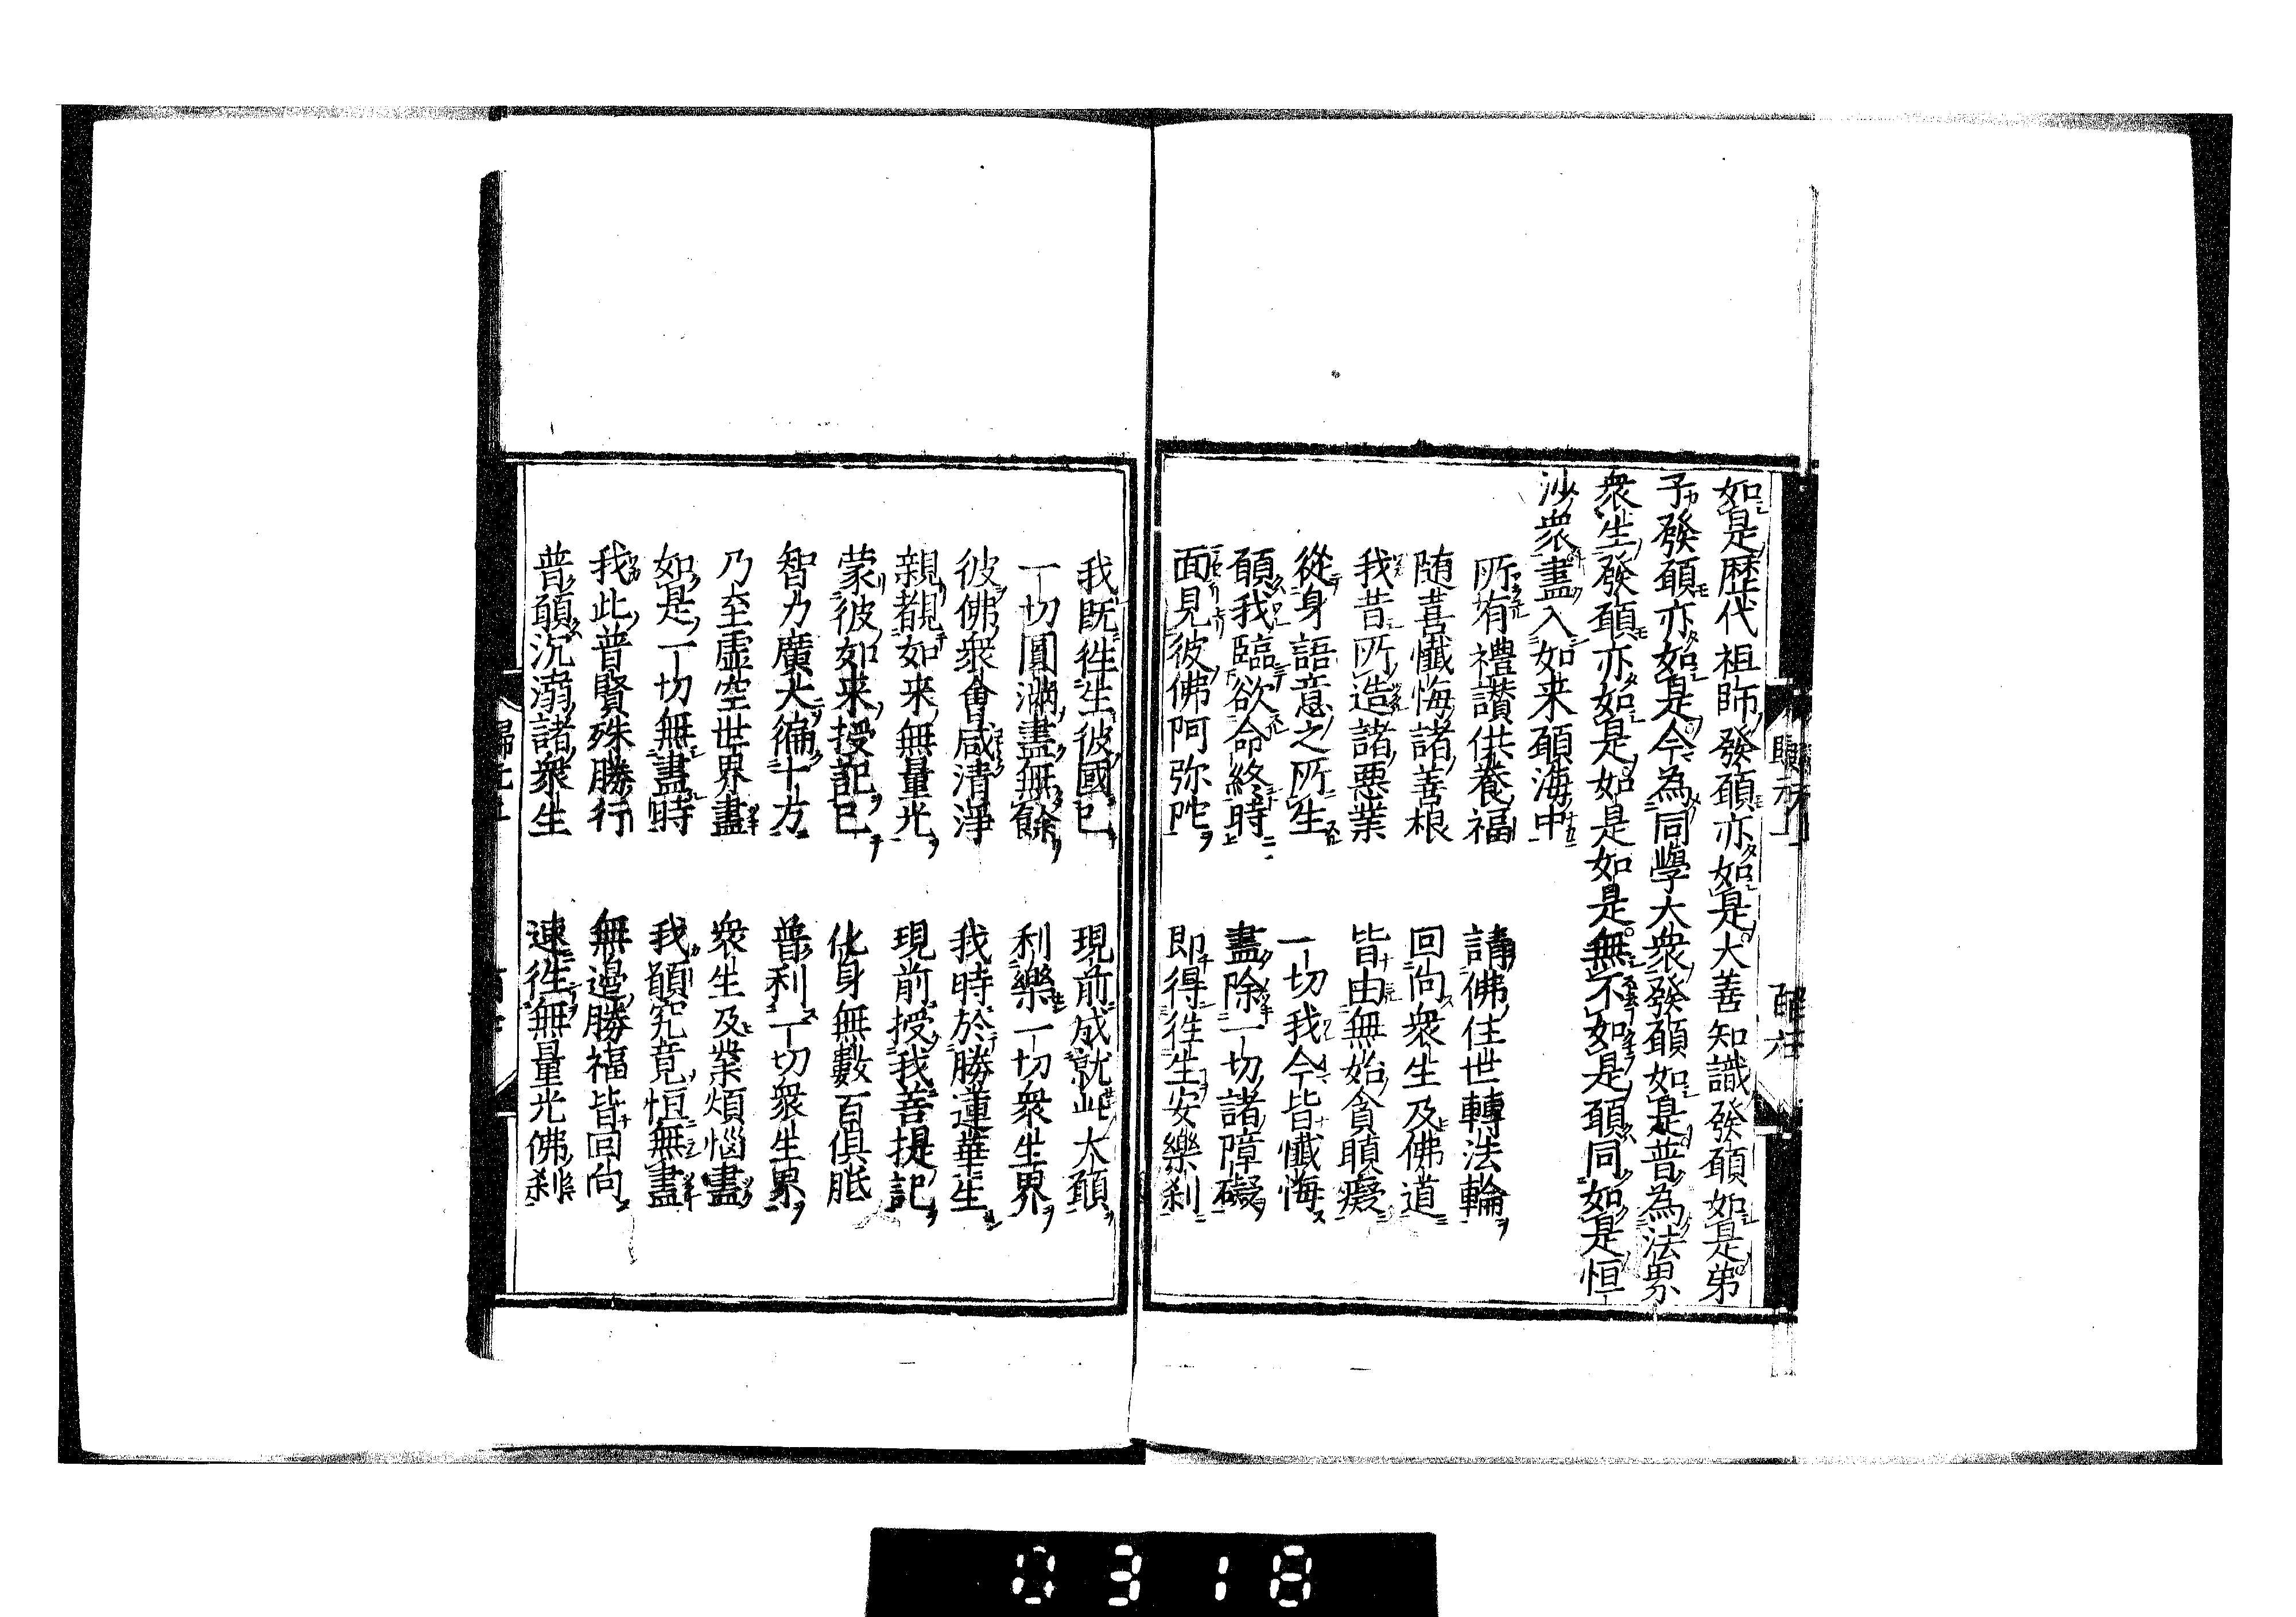 如是歴代祖師發願亦如是大善知識發願如是弟
子發願亦如是今為同學大衆發願如是普為法界
衆生發願亦如是如是如是無不如是願同如是恒
沙衆盡入如来願海中
所有禮讃供養福　請佛住世轉法輪
随喜懺悔諸善根　回向衆生及佛道
我昔所造諸惡業　皆由無始貪瞋癡
從身語意之所生　一切我今皆懺悔
願我臨欲命終時　盡除一切諸障礙
面見彼佛阿弥陀　即得徃生安樂刹
我既徃生彼國已　現前成就此大願
一切圓滿盡無餘　利樂一切衆生界
彼佛衆會咸清淨　我時於勝蓮華生
親覩如来無量光　現前授我菩提記
蒙彼如来授記已　化身無數百俱胝
智力廣大徧十方　普利一切衆生界
乃至虛空世界盡　衆生及業煩惱盡
如是一切無盡時　我願究竟恒無盡
我此普賢殊勝行　無邊勝福皆回向
普願沉溺諸衆生　速徃無量光佛刹
0318